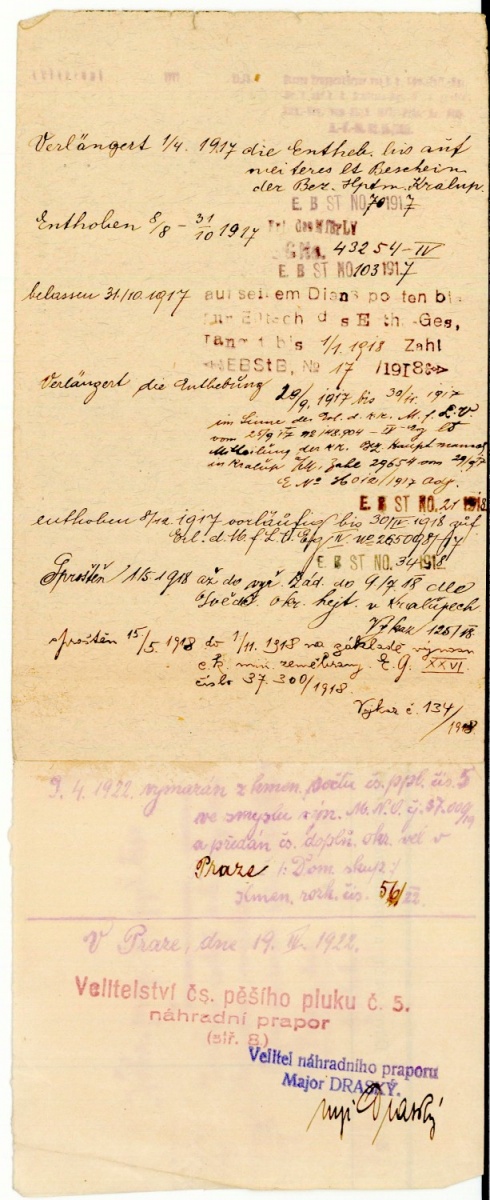 Verlängert 1/4. 1917 die Entheb. bis auf
weiteres lt Beschein
der Bez. Hptm. Kralup.
E. B ST NO. 70 1917
Enthoben 8/8 – 31/10 1917
G No. 43254-IV
E. B ST NO. 103 1917
belassen 31/10 1917 auf seinem Dienstposten bis
zur d s E th.-Ges,
bis 1/1 1918 Zahl
EBStB, No 17 /1918
Verlängert die Enthebung 29/9. 1917 bis 30/11. 1917
im Sinne des Erl. d. k.k. M. f. L.V
vom 25/9 17 No 148.904 – IV lt
Mitteilung der k.k. Bez. Hauptmannsch
in Kralup Zahl 29654 vom 29/9 17
E No /1917
E. B ST NO. 21 1918
enthoben 8/12 1917 vorläufig bis 30/IV 1918 zuf.
Erl. d. M f L V IV No 265098/17
E. B ST NO. 34 1918
Sproštěn 1/5 1918 až do vyř. žád. do 9/7 18 dle
Osvědč. okr. hejt. v Kralupech
Výkaz 125/18.
sproštěn 15/5. 1918 do 1/11. 1918 na základě výnosu
c.k. min. zeměbrany. E. G. XXVI.
číslo 37. 300/1918.
Výkaz č. 134/1918
9. 4. 1922 vymazán z kmen. počtu čs. ppl. čís. 5
ve smyslu výn. M.N.O. č. 37.
a předán čs. doplň. okr. vel. v
Praze /: Dom. skup:/
Kmen. rozk. čís. 56/22.
V Praze, dne 19. IV. 1922.
Velitelství čs. pěšího pluku č. 5.
náhradní prapor
(stř. 8.)
Velitel náhradního praporu
Major DRASKÝ.
Draský